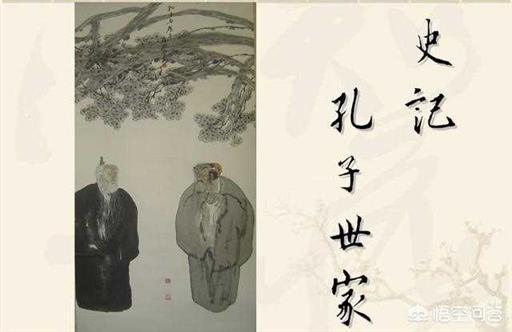 史記
孔子世家
悟空问答